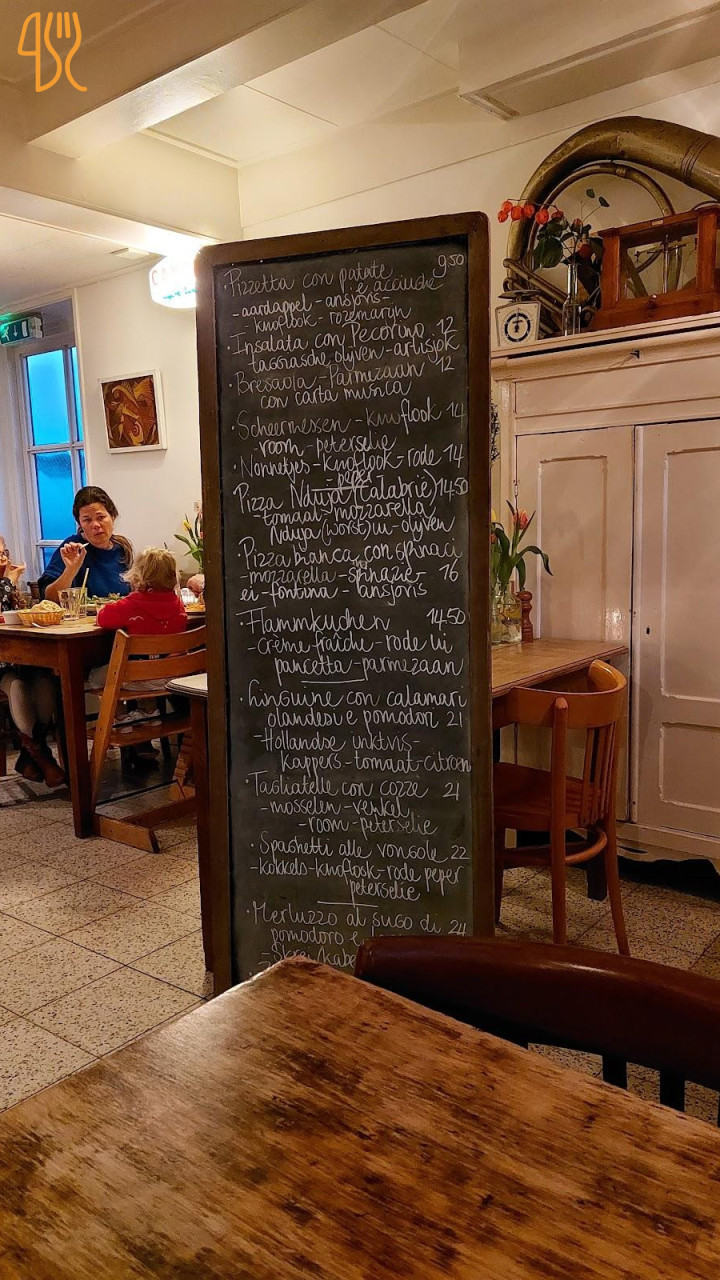 Pizzetta con patate 9,50
e acciughe
- aardappel - ansjovis -
- knoflook - rozemarijn
· Insalata con Pecorino 12
taggiasche olijven - artisjok
· Bresaola - Parmezaan 12
con carta musica
· Scheermessen - knoflook 14
room - peterselie
· Nonnetjes - knoflook - rode 14
peper
Pizza Nduja (Calabrië) 14,50
- tomaat - mozzarella
Nduja (worst) ui - olijven
· Pizza bianca con spinaci
- mozzarella - spinazie - 16
ei - fontina - ansjovis
· Flammkuchen 14.50
- crème fraîche - rode ui
pancetta - parmezaan
· Linguine con calamari
olandesi e pomodori 21
- Hollandse inktvis -
kappers - tomaat - citroen
· Tagliatelle con cozze 21
- mosselen - venkel
- room - peterselie
· Spaghetti alle vongole 22
- kokkels - knoflook - rode peper
peterselie
· Merluzzo al sugo di 24
pomodoro e
- Skrei